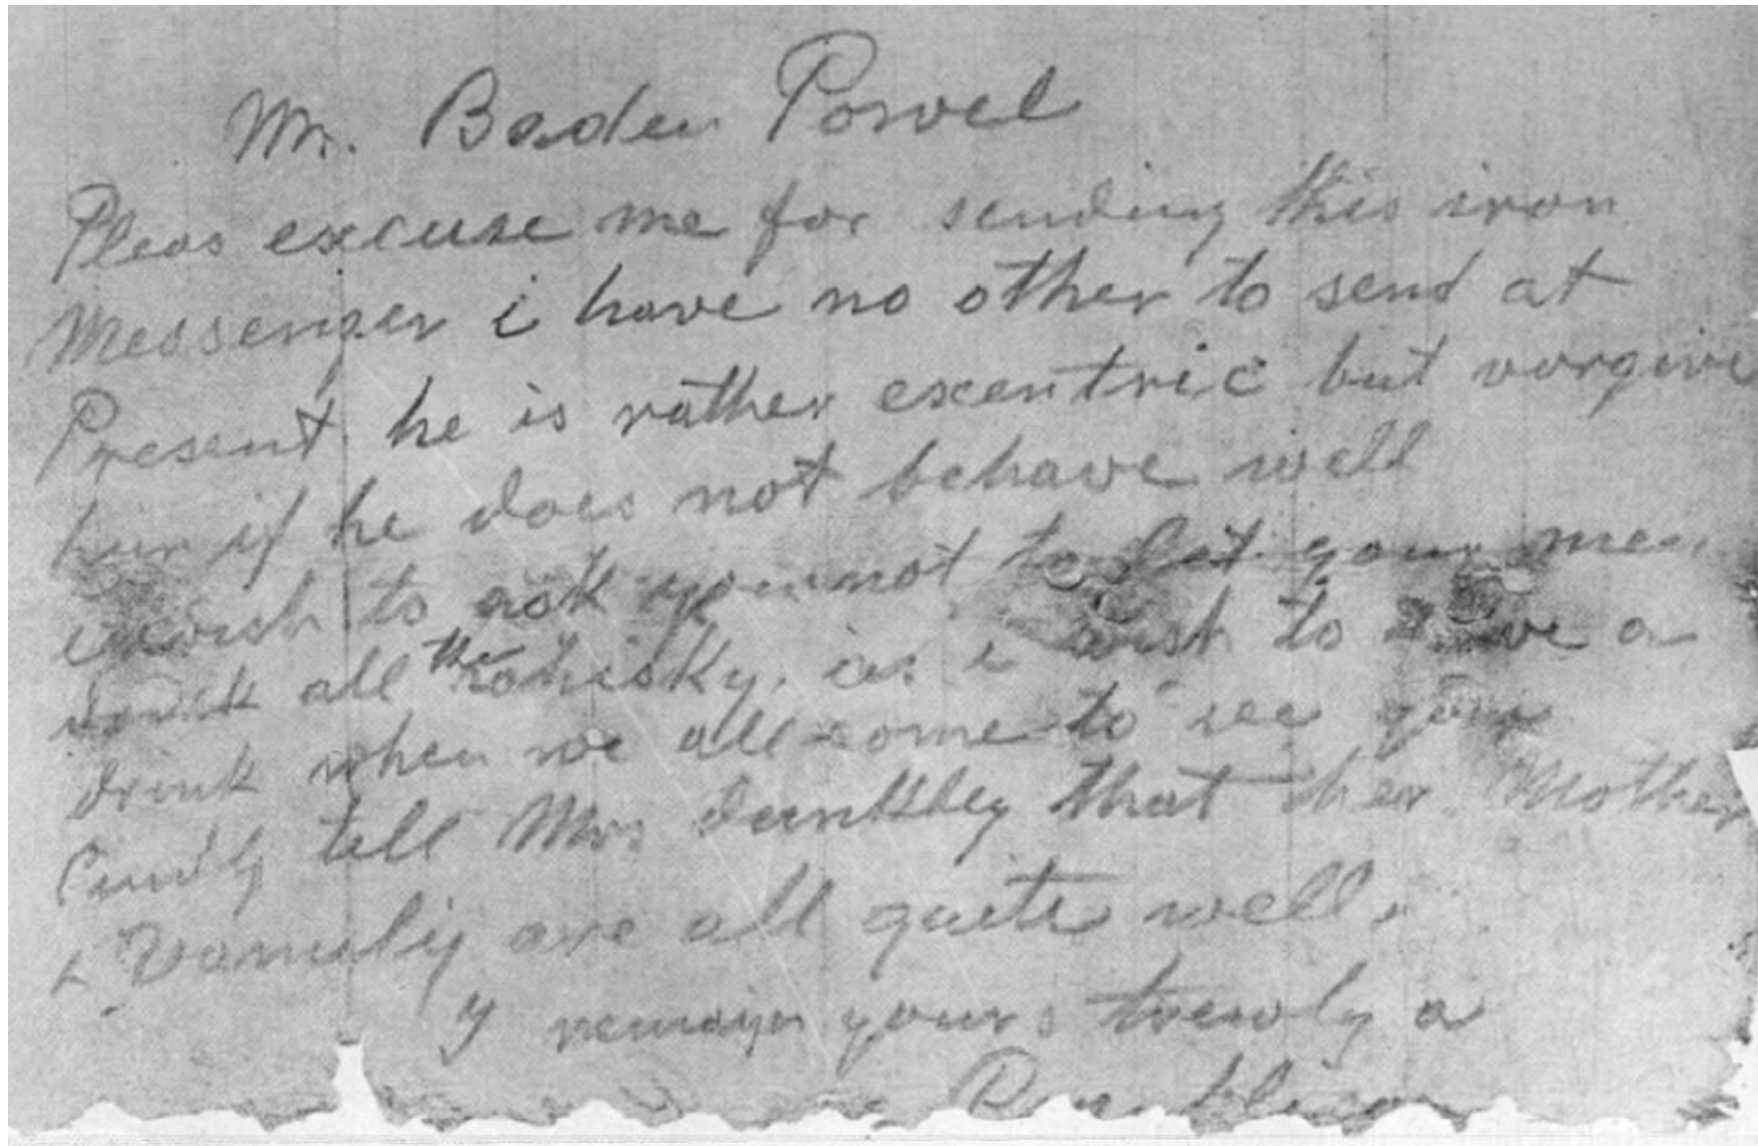 Mr. Baden Powel
Pleas excuse me for sending this iron
Messenger i have no other to send at
Present he is rather excentric but vorgive
him if he does not behave well
i wish to ask you not to let your men
drink all the whisky, as i wish to have a
drink when we all come to see you
Cindly tell Mrs dunkley that her Mother
& Vamily are all quite well,
y remain yours trewly a